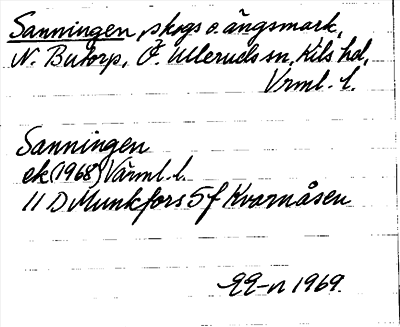 Sanningen, skogs o. ängsmark,
N. Butorp, Ö. Ulleruds sn, Kils hd,
Vrml. l.
Sanningen
ek (1968) Värml. l.
11 D Munkfors 5 f Kvarnåsen
1969.